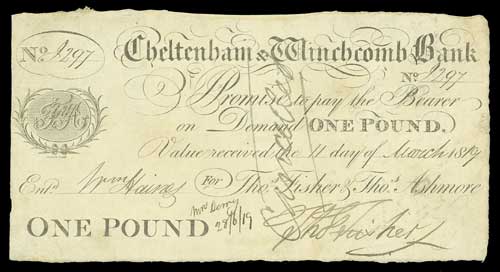 Cheltenham & Winchcomb Bank
No. 1297
No. 1297
I Promise to pay the Bearer
on Demand ONE POUND.
Value received the 11 day of March 1819
Entd. Wm Hains For Thos. Fisher & Thos. Ashmore
ONE POUND 28/6/19 Thos Fisher